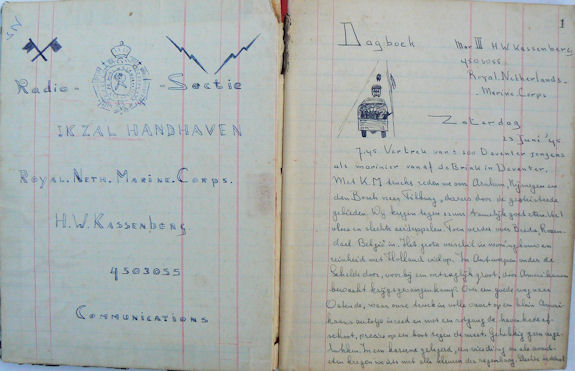 Radio-   -Sectie
IK ZAL HANDHAVEN
Royal. Neth. Marine. Corps.
H.W. Kassenberg
4503055
Communications
1
Dagboek
Mar III H.W. Kassenberg
4503055.
Royal. Netherlands.
- Marine. Corps
Zaterdag
23 Juni '45
7.45 Vertrek van ± 200 Deventer jongens
als marinier vanaf de Brink in Deventer.
Met K.M. trucks reden we over Arnhem, Nijmegen en
den Bosch naar Tilburg, dwars door de geteisterde
gebieden. Wij kregen tegen eten. Veel
vlees en slechte aardappelen. Toen verder over Breda, Roosen-
daal België in. Het grote verschil in woningbouw en
reinheid met Holland viel op. In Antwerpen onder de
Schelde door, voorbij een ontzaglijk groot, door Amerikanen
bewaakt krijgsgevangenkamp. Over een goede weg naar
Ostende, waar onze truck in volle vaart op een klein Ameri-
kaans autotje inreed en met een rotgang de havenkade af-
schoot, precies op een boot tegen de mast. Gelukkig geen onge-
lukken. In een kazerne gelegerd,